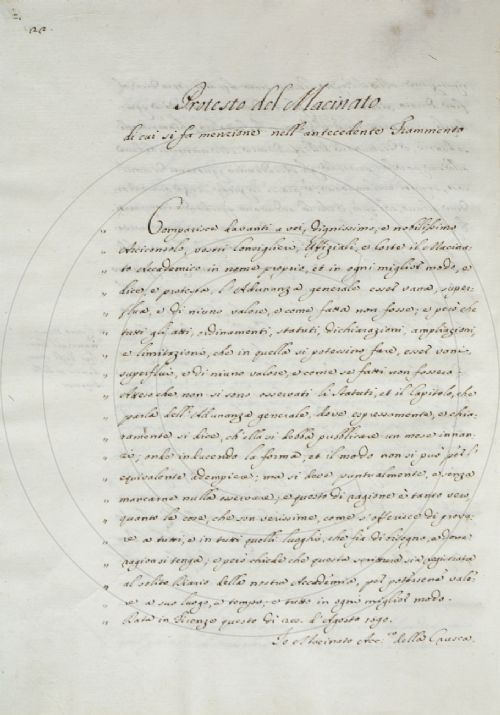 Protesto del Macinato
di cui si fa menzione nell'antecedente Frammento
" Comparisce davanti a voi, dignissimo, e nobilissimo
" Arciconsolo, vostri Consiglieri, Uffiziali, e Corte il Macina-
" to Accademico in nome proprio, et in ogni miglior modo, e
" dice, e protesta, l'Adunanza generale esser vana, super-
" flua, e di niuno valore, e come fatta non fosse; e però che
" tutti gli atti, ordinamenti, statuti, dichiarazioni, ampliazioni,
" e limitazione, che in quella si potessino fare, esser vani
" superflui, e di niuno valore, e come se fatti non fossero.
" Atteso che non si sono osservati li Statuti, et il Capitolo, che
" parla dell'Adunanza generale, dove espressamente, e chia-
" ramente si dice, ch'ella si debba pubblicare un mese innan-
" zi; onde inducendo la forma, et il modo non si può per l'
" equivalente adempiere; ma si deve puntualmente, e senza
" mancarne nulla osservare; e questo di ragione è tanto vero
" quanto le cose, che son verissime, come s'offerisce di prova-
" re a tutti, e in tutti quelli luoghi, che fia di bisogno, e dove
" ragion si tenga; e però chiede che questa scrittura sia registrata
" al solito Diario della nostra Accademia, per potersene vale-
" re a suo luogo, e tempo; e tutto in ogni miglior modo.
" Data in Firenze questo dì 20. d'Agosto 1690.
Io Macinato Acc.co della Crusca